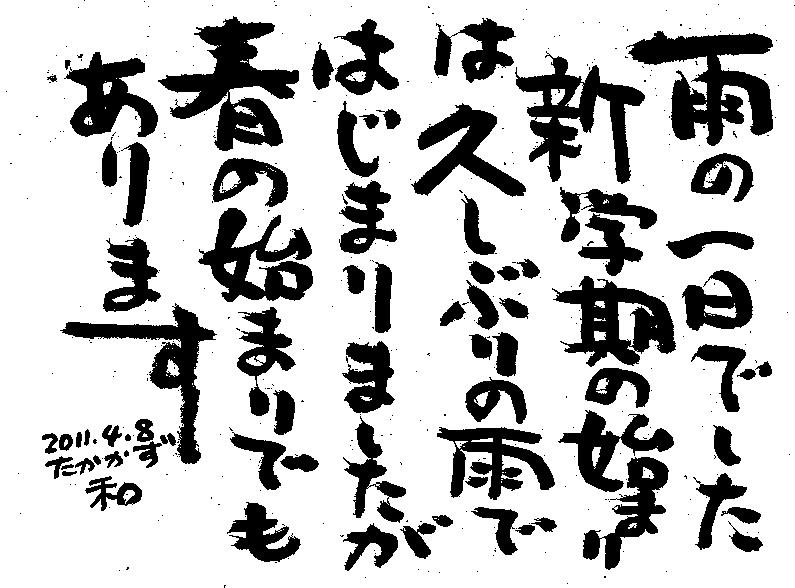 雨の一日でした
新学期の始まり
は久しぶりの雨で
はじまりましたが
春の始まりでも
あります
2011.4.8
たかかず
和